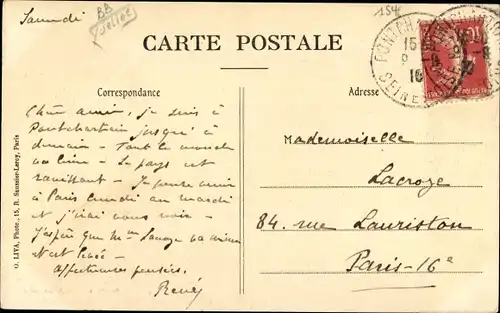 Samedi
154
CARTE POSTALE
Correspondance
Adresse
Chère amie, je suis à
Pontchartrain jusqu'à
demain – Tout le monde
va bien – Le pays est
ravissant – Je pense venir
à Paris lundi ou mardi
et j'irai vous voir –
J'espère que Mme Lacroze va mieux
et est levée –
Affectueuses pensées.
René
Mademoiselle
Lacroze
84. rue Lauriston
Paris-16e
O. LIVA, Photo., 15, R. Saussier-Leroy, Paris
PONTCH
15
10
SEINE
10